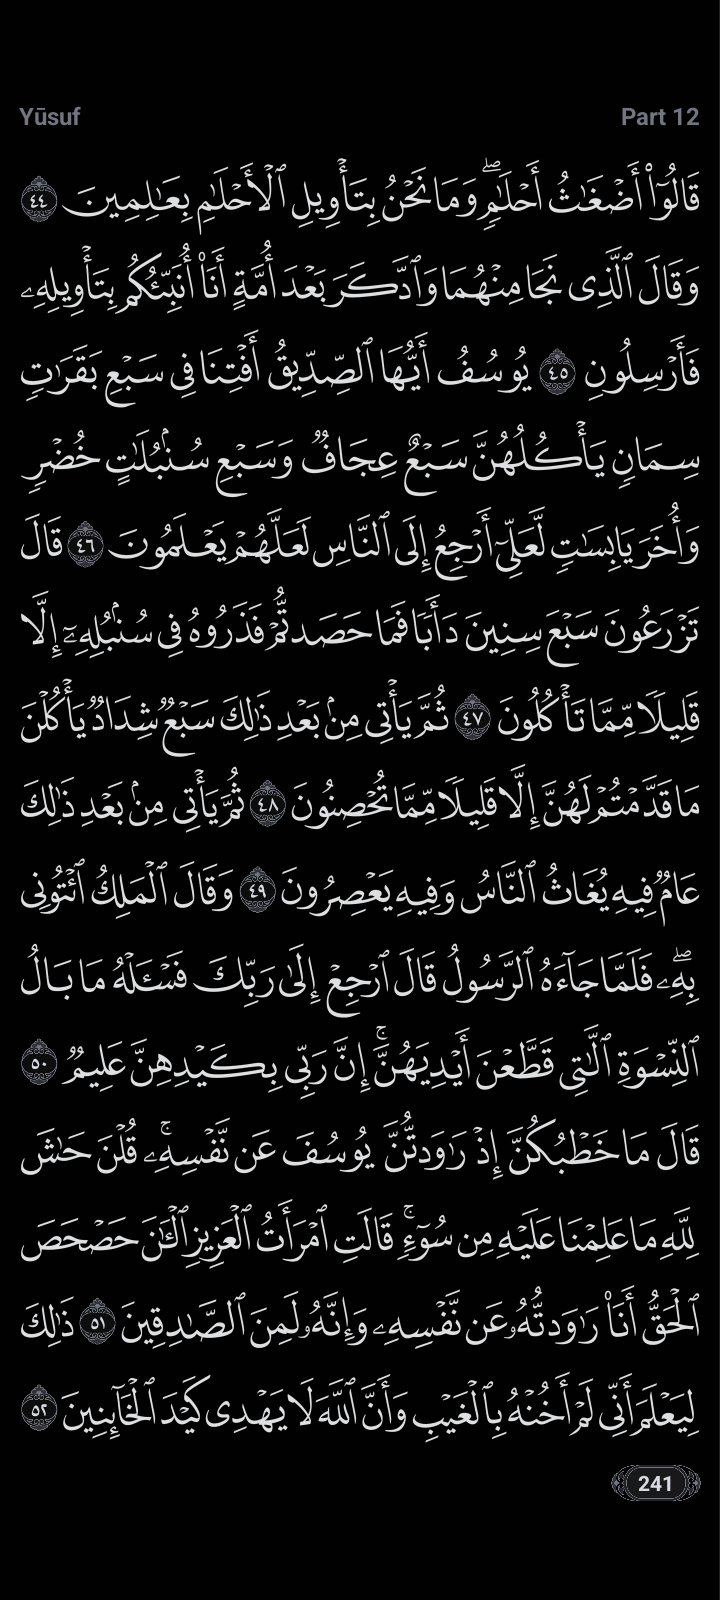 Yūsuf Part 12
قَالُوٓا۟ أَضْغَـٰثُ أَحْلَـٰمٍۢ ۖ وَمَا نَحْنُ بِتَأْوِيلِ ٱلْأَحْلَـٰمِ بِعَـٰلِمِينَ ٤٤
وَقَالَ ٱلَّذِى نَجَا مِنْهُمَا وَٱدَّكَرَ بَعْدَ أُمَّةٍ أَنَا۠ أُنَبِّئُكُم بِتَأْوِيلِهِۦ
فَأَرْسِلُونِ ٤٥ يُوسُفُ أَيُّهَا ٱلصِّدِّيقُ أَفْتِنَا فِى سَبْعِ بَقَرَٰتٍۢ
سِمَانٍۢ يَأْكُلُهُنَّ سَبْعٌ عِجَافٌۭ وَسَبْعِ سُنۢبُلَـٰتٍ خُضْرٍۢ
وَأُخَرَ يَابِسَـٰتٍۢ لَّعَلِّىٓ أَرْجِعُ إِلَى ٱلنَّاسِ لَعَلَّهُمْ يَعْلَمُونَ ٤٦ قَالَ
تَزْرَعُونَ سَبْعَ سِنِينَ دَأَبًۭا فَمَا حَصَدتُّمْ فَذَرُوهُ فِى سُنۢبُلِهِۦٓ إِلَّا
قَلِيلًۭا مِّمَّا تَأْكُلُونَ ٤٧ ثُمَّ يَأْتِى مِنۢ بَعْدِ ذَٰلِكَ سَبْعٌۭ شِدَادٌۭ يَأْكُلْنَ
مَا قَدَّمْتُمْ لَهُنَّ إِلَّا قَلِيلًۭا مِّمَّا تُحْصِنُونَ ٤٨ ثُمَّ يَأْتِى مِنۢ بَعْدِ ذَٰلِكَ
عَامٌۭ فِيهِ يُغَاثُ ٱلنَّاسُ وَفِيهِ يَعْصِرُونَ ٤٩ وَقَالَ ٱلْمَلِكُ ٱئْتُونِى
بِهِۦ ۖ فَلَمَّا جَآءَهُ ٱلرَّسُولُ قَالَ ٱرْجِعْ إِلَىٰ رَبِّكَ فَسْـَٔلْهُ مَا بَالُ
ٱلنِّسْوَةِ ٱلَّـٰتِى قَطَّعْنَ أَيْدِيَهُنَّ ۚ إِنَّ رَبِّى بِكَيْدِهِنَّ عَلِيمٌۭ ٥٠
قَالَ مَا خَطْبُكُنَّ إِذْ رَٰوَدتُّنَّ يُوسُفَ عَن نَّفْسِهِۦ ۚ قُلْنَ حَـٰشَ
لِلَّهِ مَا عَلِمْنَا عَلَيْهِ مِن سُوٓءٍۢ ۚ قَالَتِ ٱمْرَأَتُ ٱلْعَزِيزِ ٱلْـَٔـٰنَ حَصْحَصَ
ٱلْحَقُّ أَنَا۠ رَٰوَدتُّهُۥ عَن نَّفْسِهِۦ وَإِنَّهُۥ لَمِنَ ٱلصَّـٰدِقِينَ ٥١ ذَٰلِكَ
لِيَعْلَمَ أَنِّى لَمْ أَخُنْهُ بِٱلْغَيْبِ وَأَنَّ ٱللَّهَ لَا يَهْدِى كَيْدَ ٱلْخَآئِنِينَ ٥٢
241